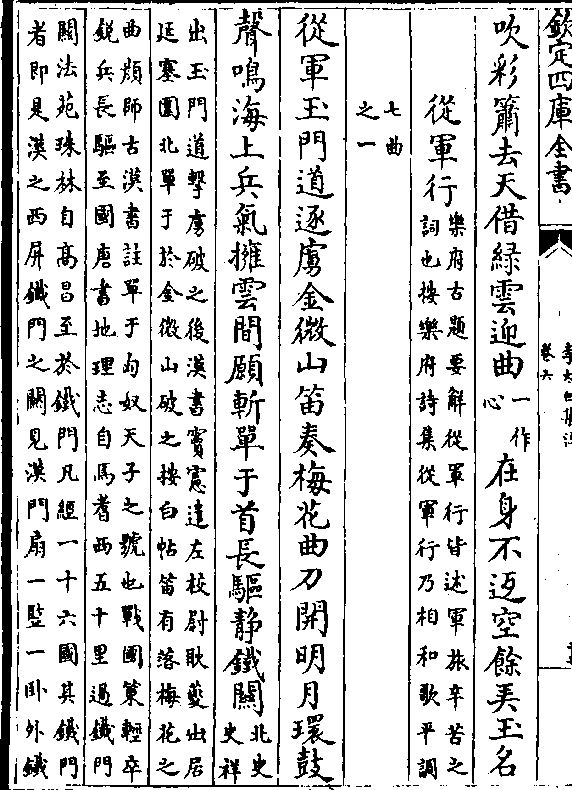 欽定四庫全書
卷六
吹彩簫去天借綠雲迎曲一作心在身不返空餘弄玉名
從軍行樂府古題要解從軍行皆述軍旅辛苦之
詞也按樂府詩集從軍行乃相和歌平調
七曲
之一
從軍玉門道逐虜金微山笛奏梅花曲刀開明月環鼓
聲鳴海上兵氣擁雲間願斬單于首長驅静鐵關北史
史祥
出玉門道擊虜破之後漢書竇憲遣左校尉耿夔出居
延塞圍北單于於金微山破之按白帖笛有落梅花之
曲顔師古漢書註單于匈奴天子之號也戰國策輕卒
銳兵長驅至國唐書地理志自焉耆西五十里過鐵門
關法苑珠林自高昌至於鐵門凡經一十六國其鐵門
者即是漢之西屏鐵門之關見漢門扇一竪一卧外鐵